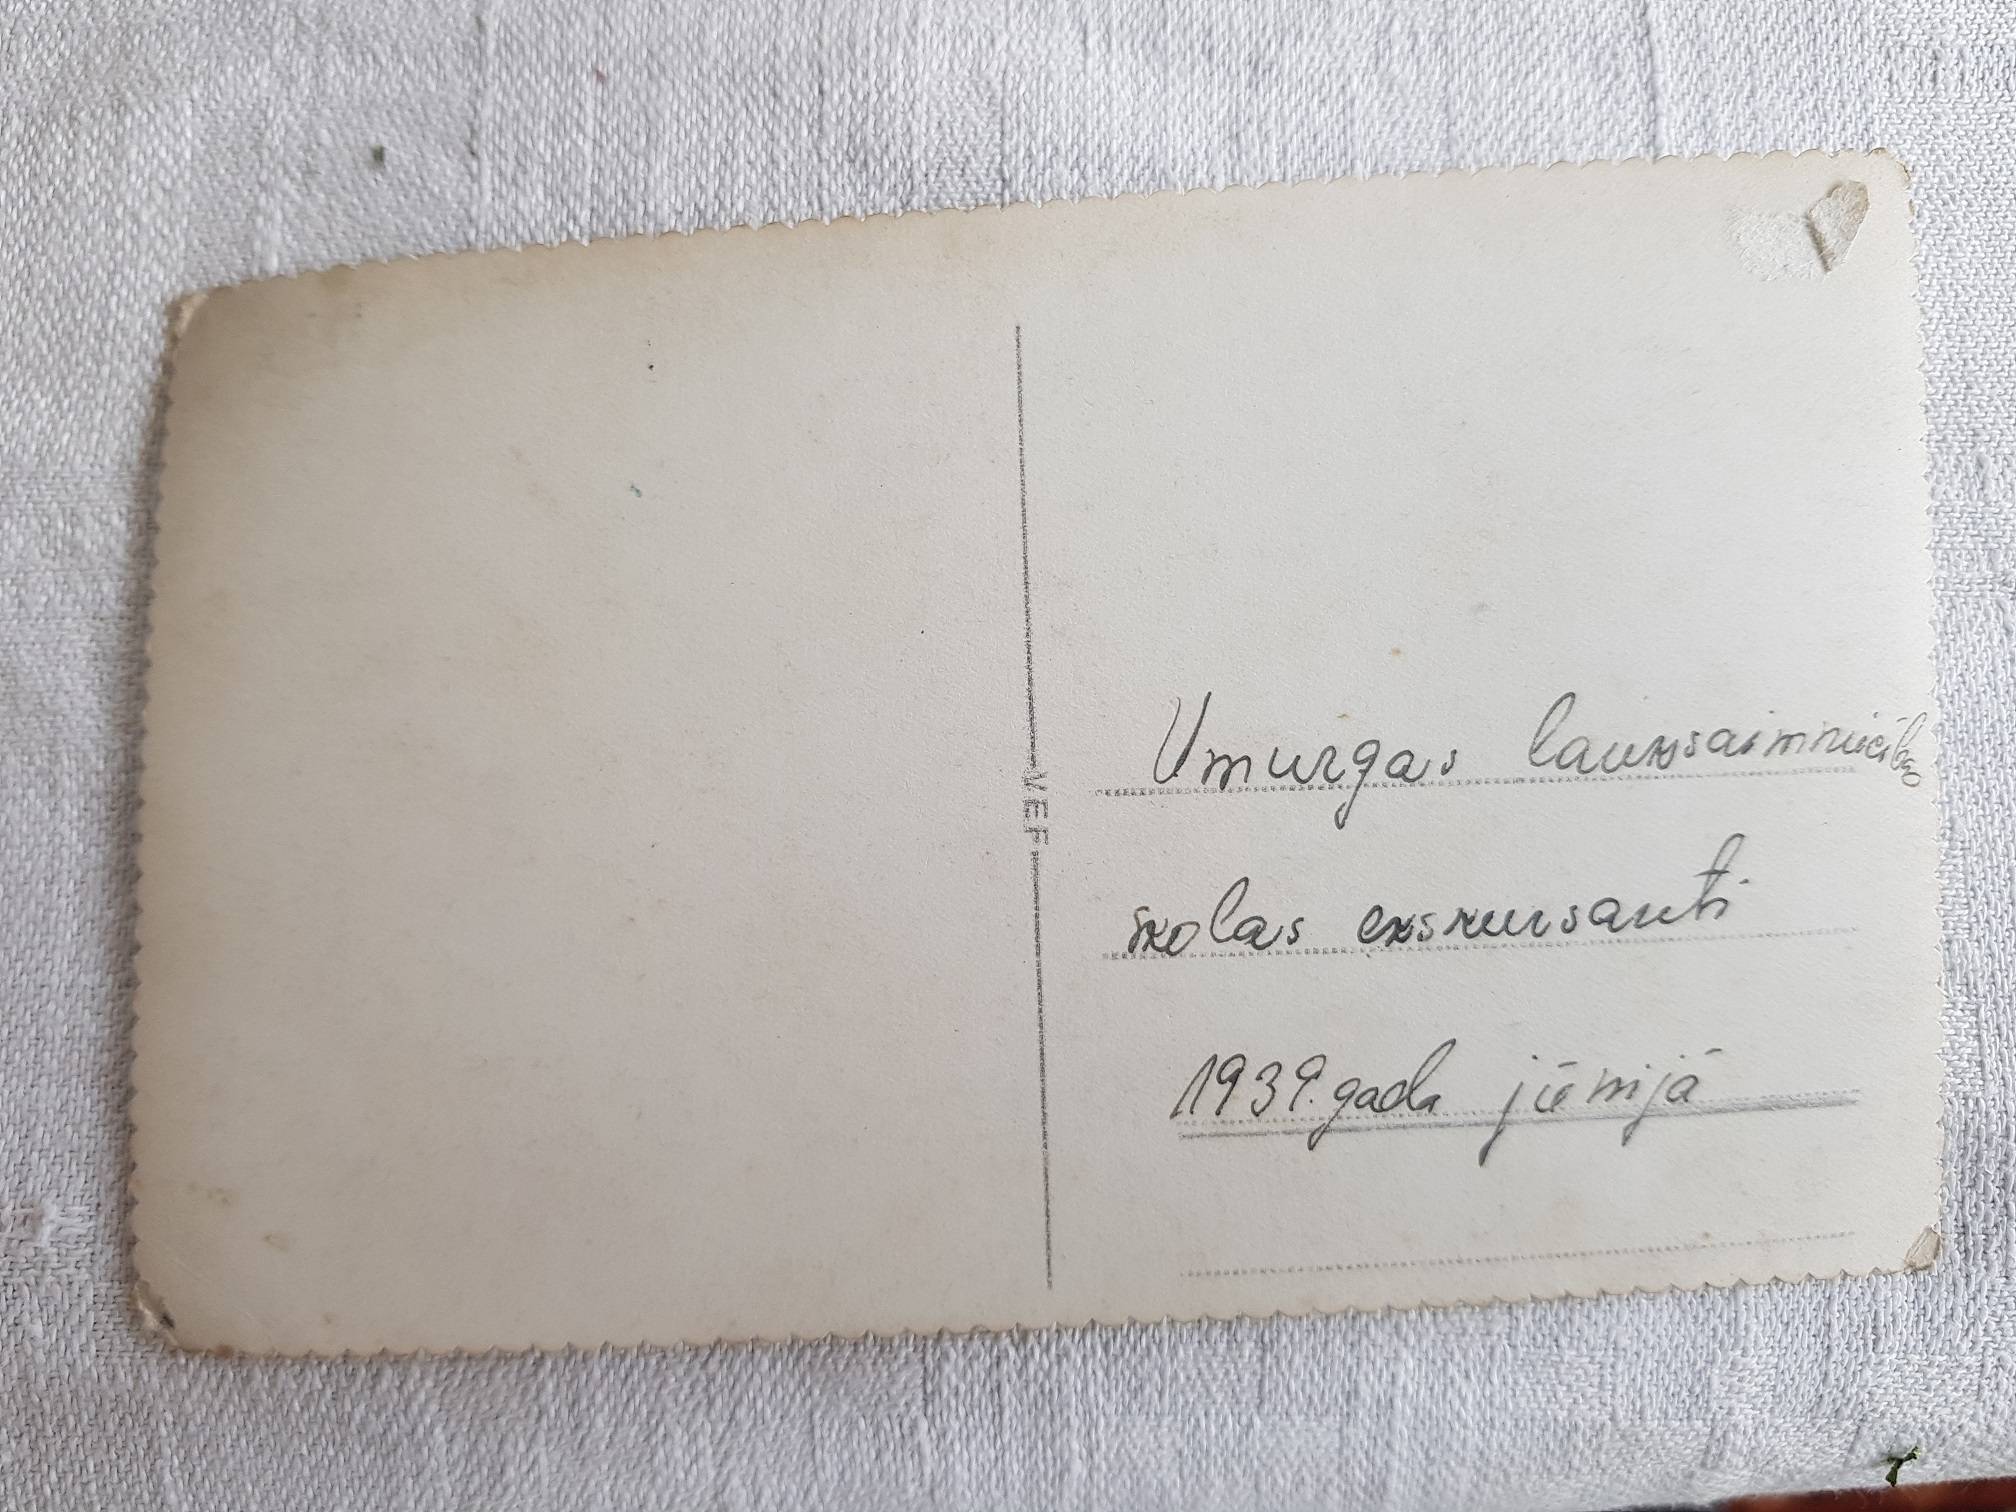 VEF
Umurgas lauksaimniecības
skolas ekskursanti
1939. gada jūnijā